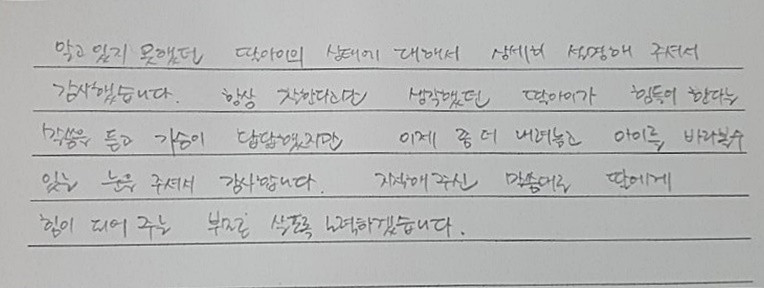 알고 있지 못했던 딸아이의 상태에 대해서 상세히 설명해 주셔서
감사했습니다. 항상 착한다고만 생각했던 딸아이가 힘들어 한다는
말씀을 듣고 가슴이 답답했지만 이제 좀 더 내려놓고 아이를 바라볼수
있는 눈을 주셔서 감사합니다. 지적해 주신 말씀대로 딸에게
힘이 되어 주는 부모로 살도록 노력하겠습니다.